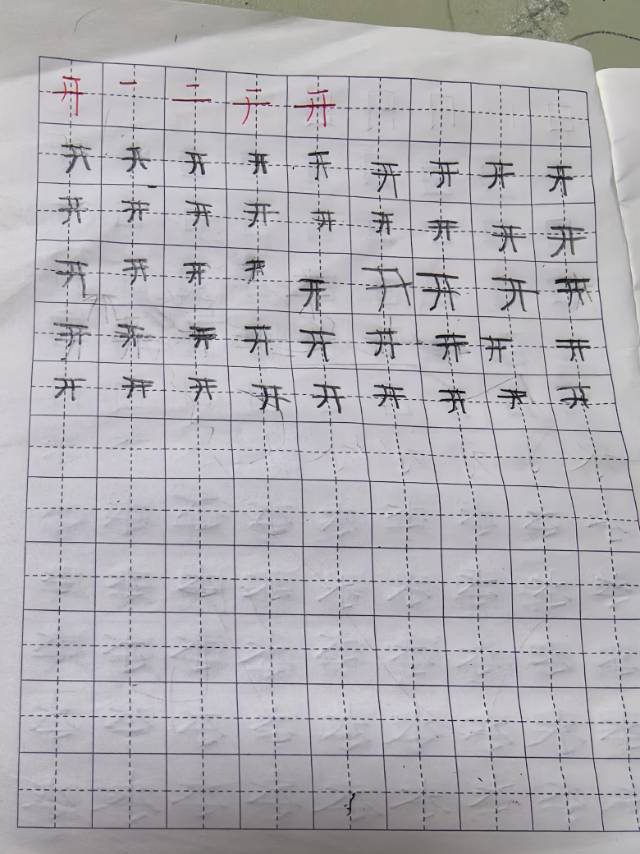 开 一 二 亍 开
开 开 开 开 开 开 开 开 开
开 开 开 开 开 开 开 开 开
开 开 开 开 开 开 开 开 开
开 开 开 开 开 开 开 开 开
开 开 开 开 开 开 开 开 开